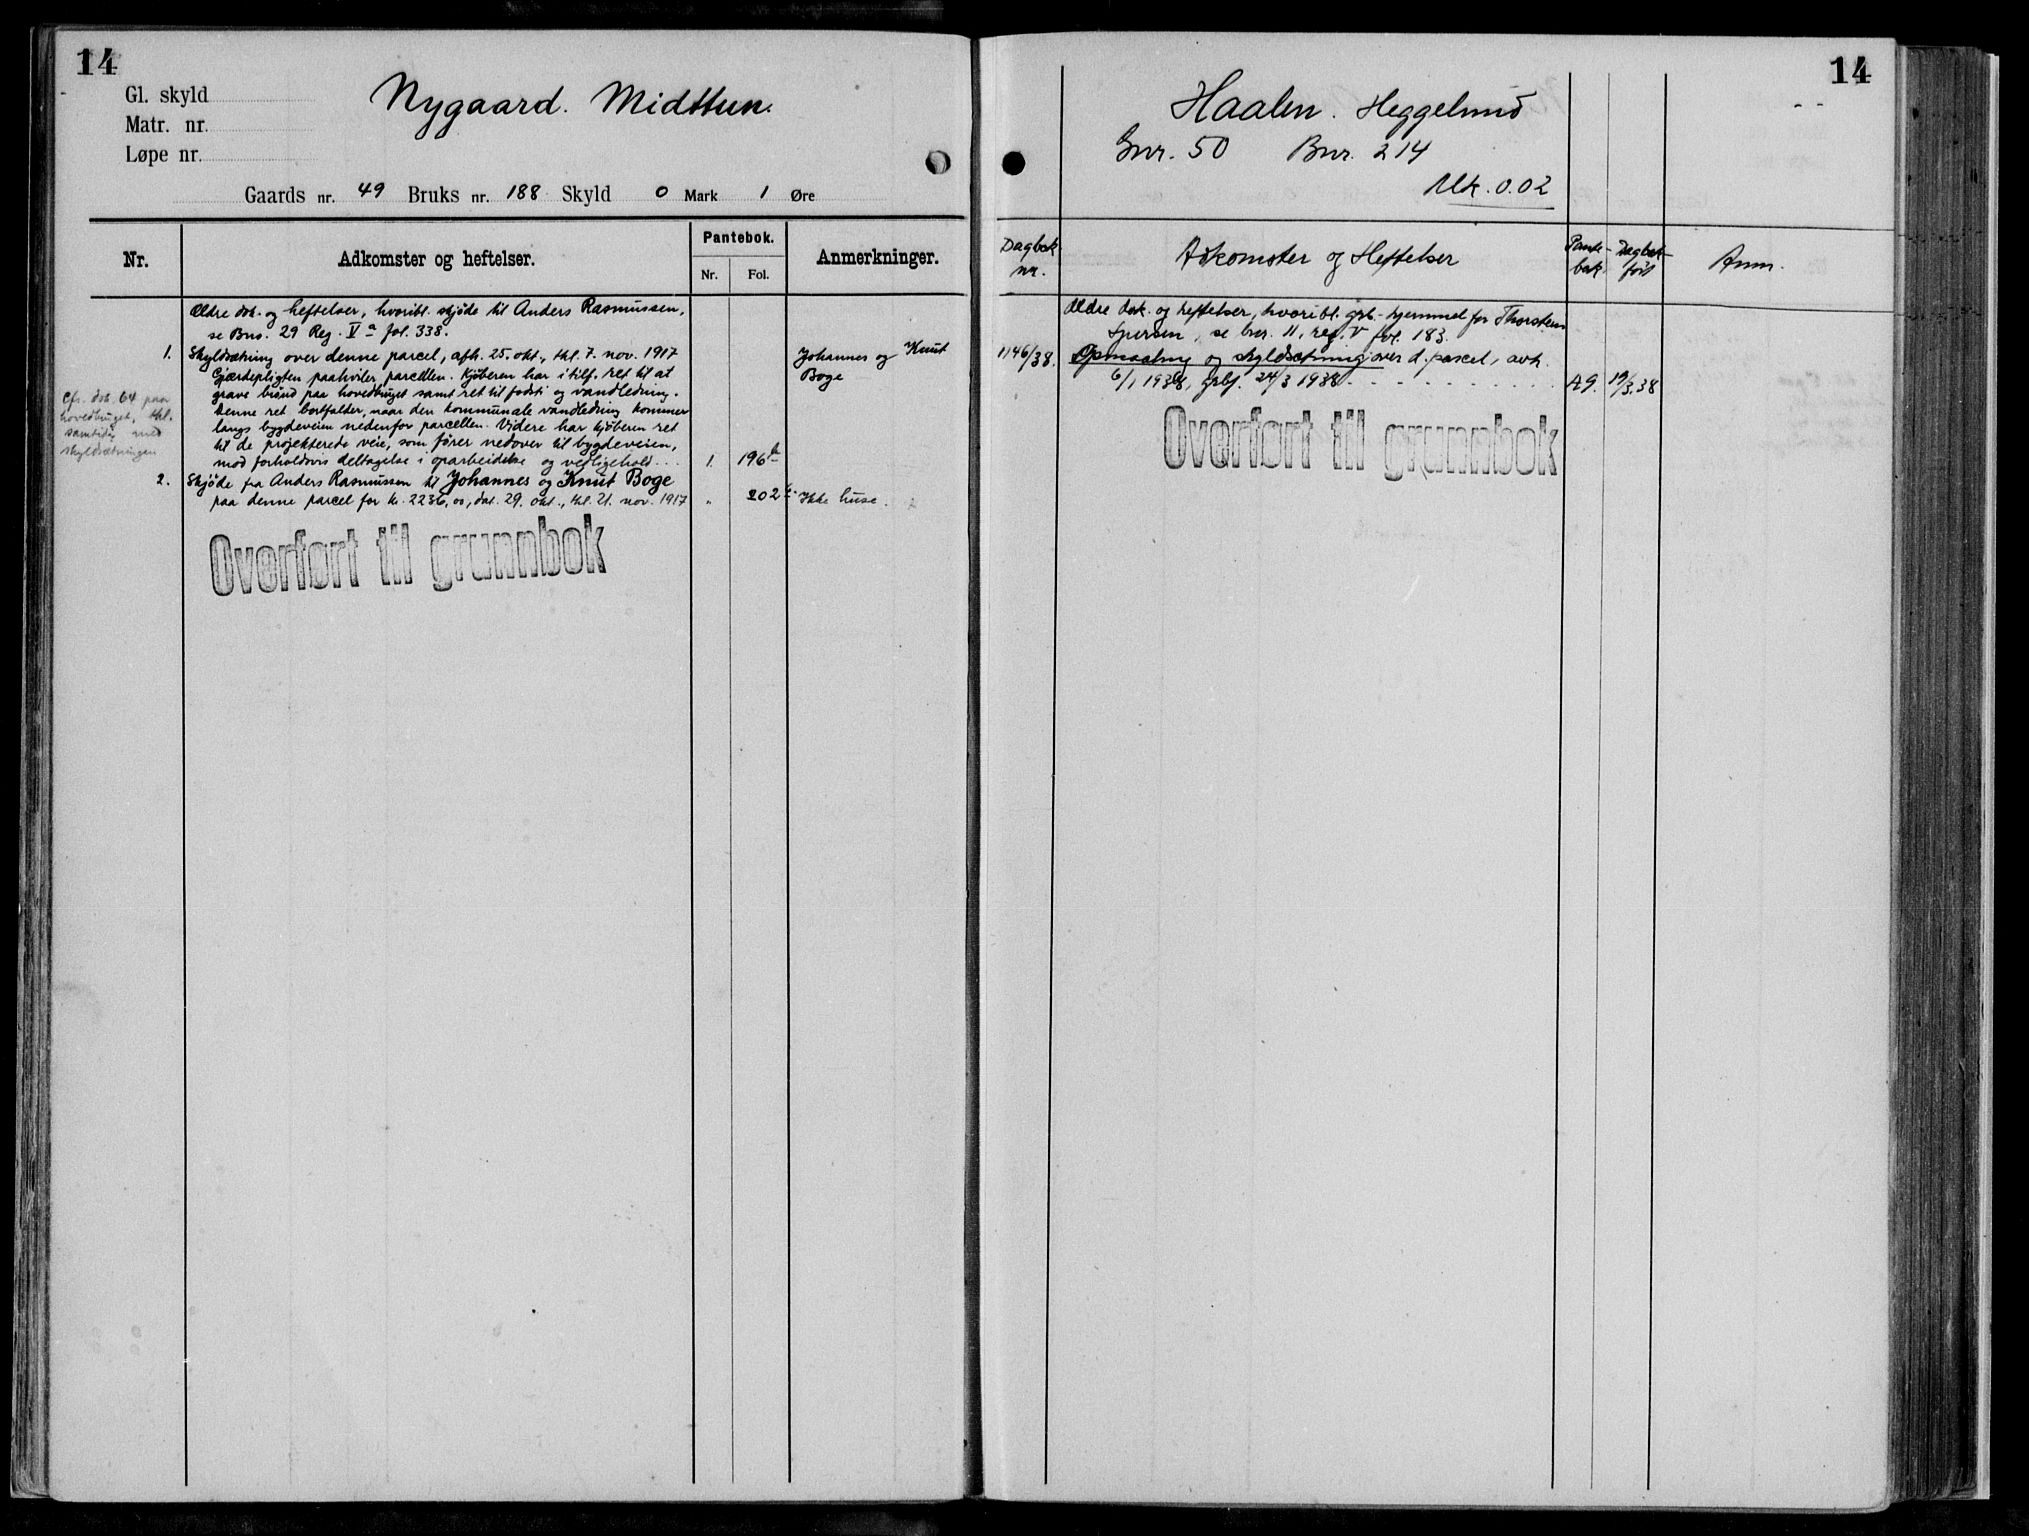 14
Gl. skyld
Matr. nr.
Løpe nr.
Nygaard. Midttun.
Gaards nr. 49 Bruks nr. 188 Skyld 0 Mark 1 Øre
Nr. Adkomster og heftelser. Pantebok. Nr. Fol. Anmerkninger.
Ældre dok. og heftelser, hvoribl. skjøde til Anders Rasmussen,
se Bno. 29 Reg. V a fol. 338.
1. Skyldsætning over denne parcel, afh. 25. okt., thl. 7. nov. 1917 Johannes og Knut
Gjærdepligten paahviler parcellen. Kjøberen har i tilf. ret til at Boge
grave brønd paa hovedbruget samt ret til fodsti og vandledning.
Denne ret bortfalder, naar den kommunale vandledning kommer
langs bygdeveien nedenfor parcellen. Videre har kjøberen ret
til de projekterede veie, som fører nedover til bygdeveien,
mod forholdsvis deltagelse i oparbeidelse og vedligehold... 1. 196 b
cfr. dok. 64 paa
hovedbruget, thl.
samtidig med
skyldsætningen
2. Skjøde fra Anders Rasmussen til Johannes og Knut Boge
paa denne parcel for kr. 2236,00, dat. 29. okt., thl. 21. nov. 1917 " 202 b Ikke huse.
Overført til grunnbok
14
Haalen. Heggelund
Gnr. 50 Bnr. 214
Mk. 0.02
Dagbok nr. Adkomster og Heftelser Pante-bok. Dagbok-ført Anm.
Ældre dok. og heftelser, hvoribl. grb. hjemmel for Thorstein
Sjursen, se bnr. 11, reg. V fol. 183.
1146/38. Opmaaling og skyldsætning over d. parcel, avh.
6/1 1938, grbf. 24/3 1938 - - - - - - - - - - A9. 19/3.38
Overført til grunnbok